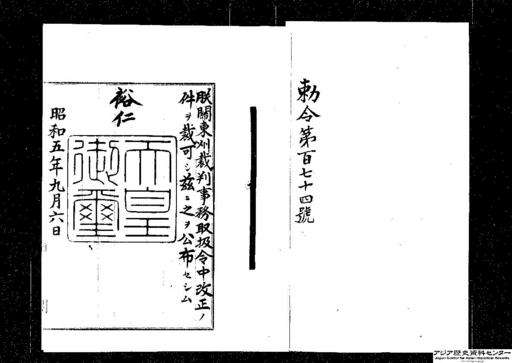 勅令第百七十四號
朕關東州裁判事務取扱令中改正ノ
件ヲ裁可シ茲ニ之ヲ公布セシム
裕仁
天皇
御璽
昭和五年九月六日
アジア歴史資料センター
Japan Center for Asian Historical Records